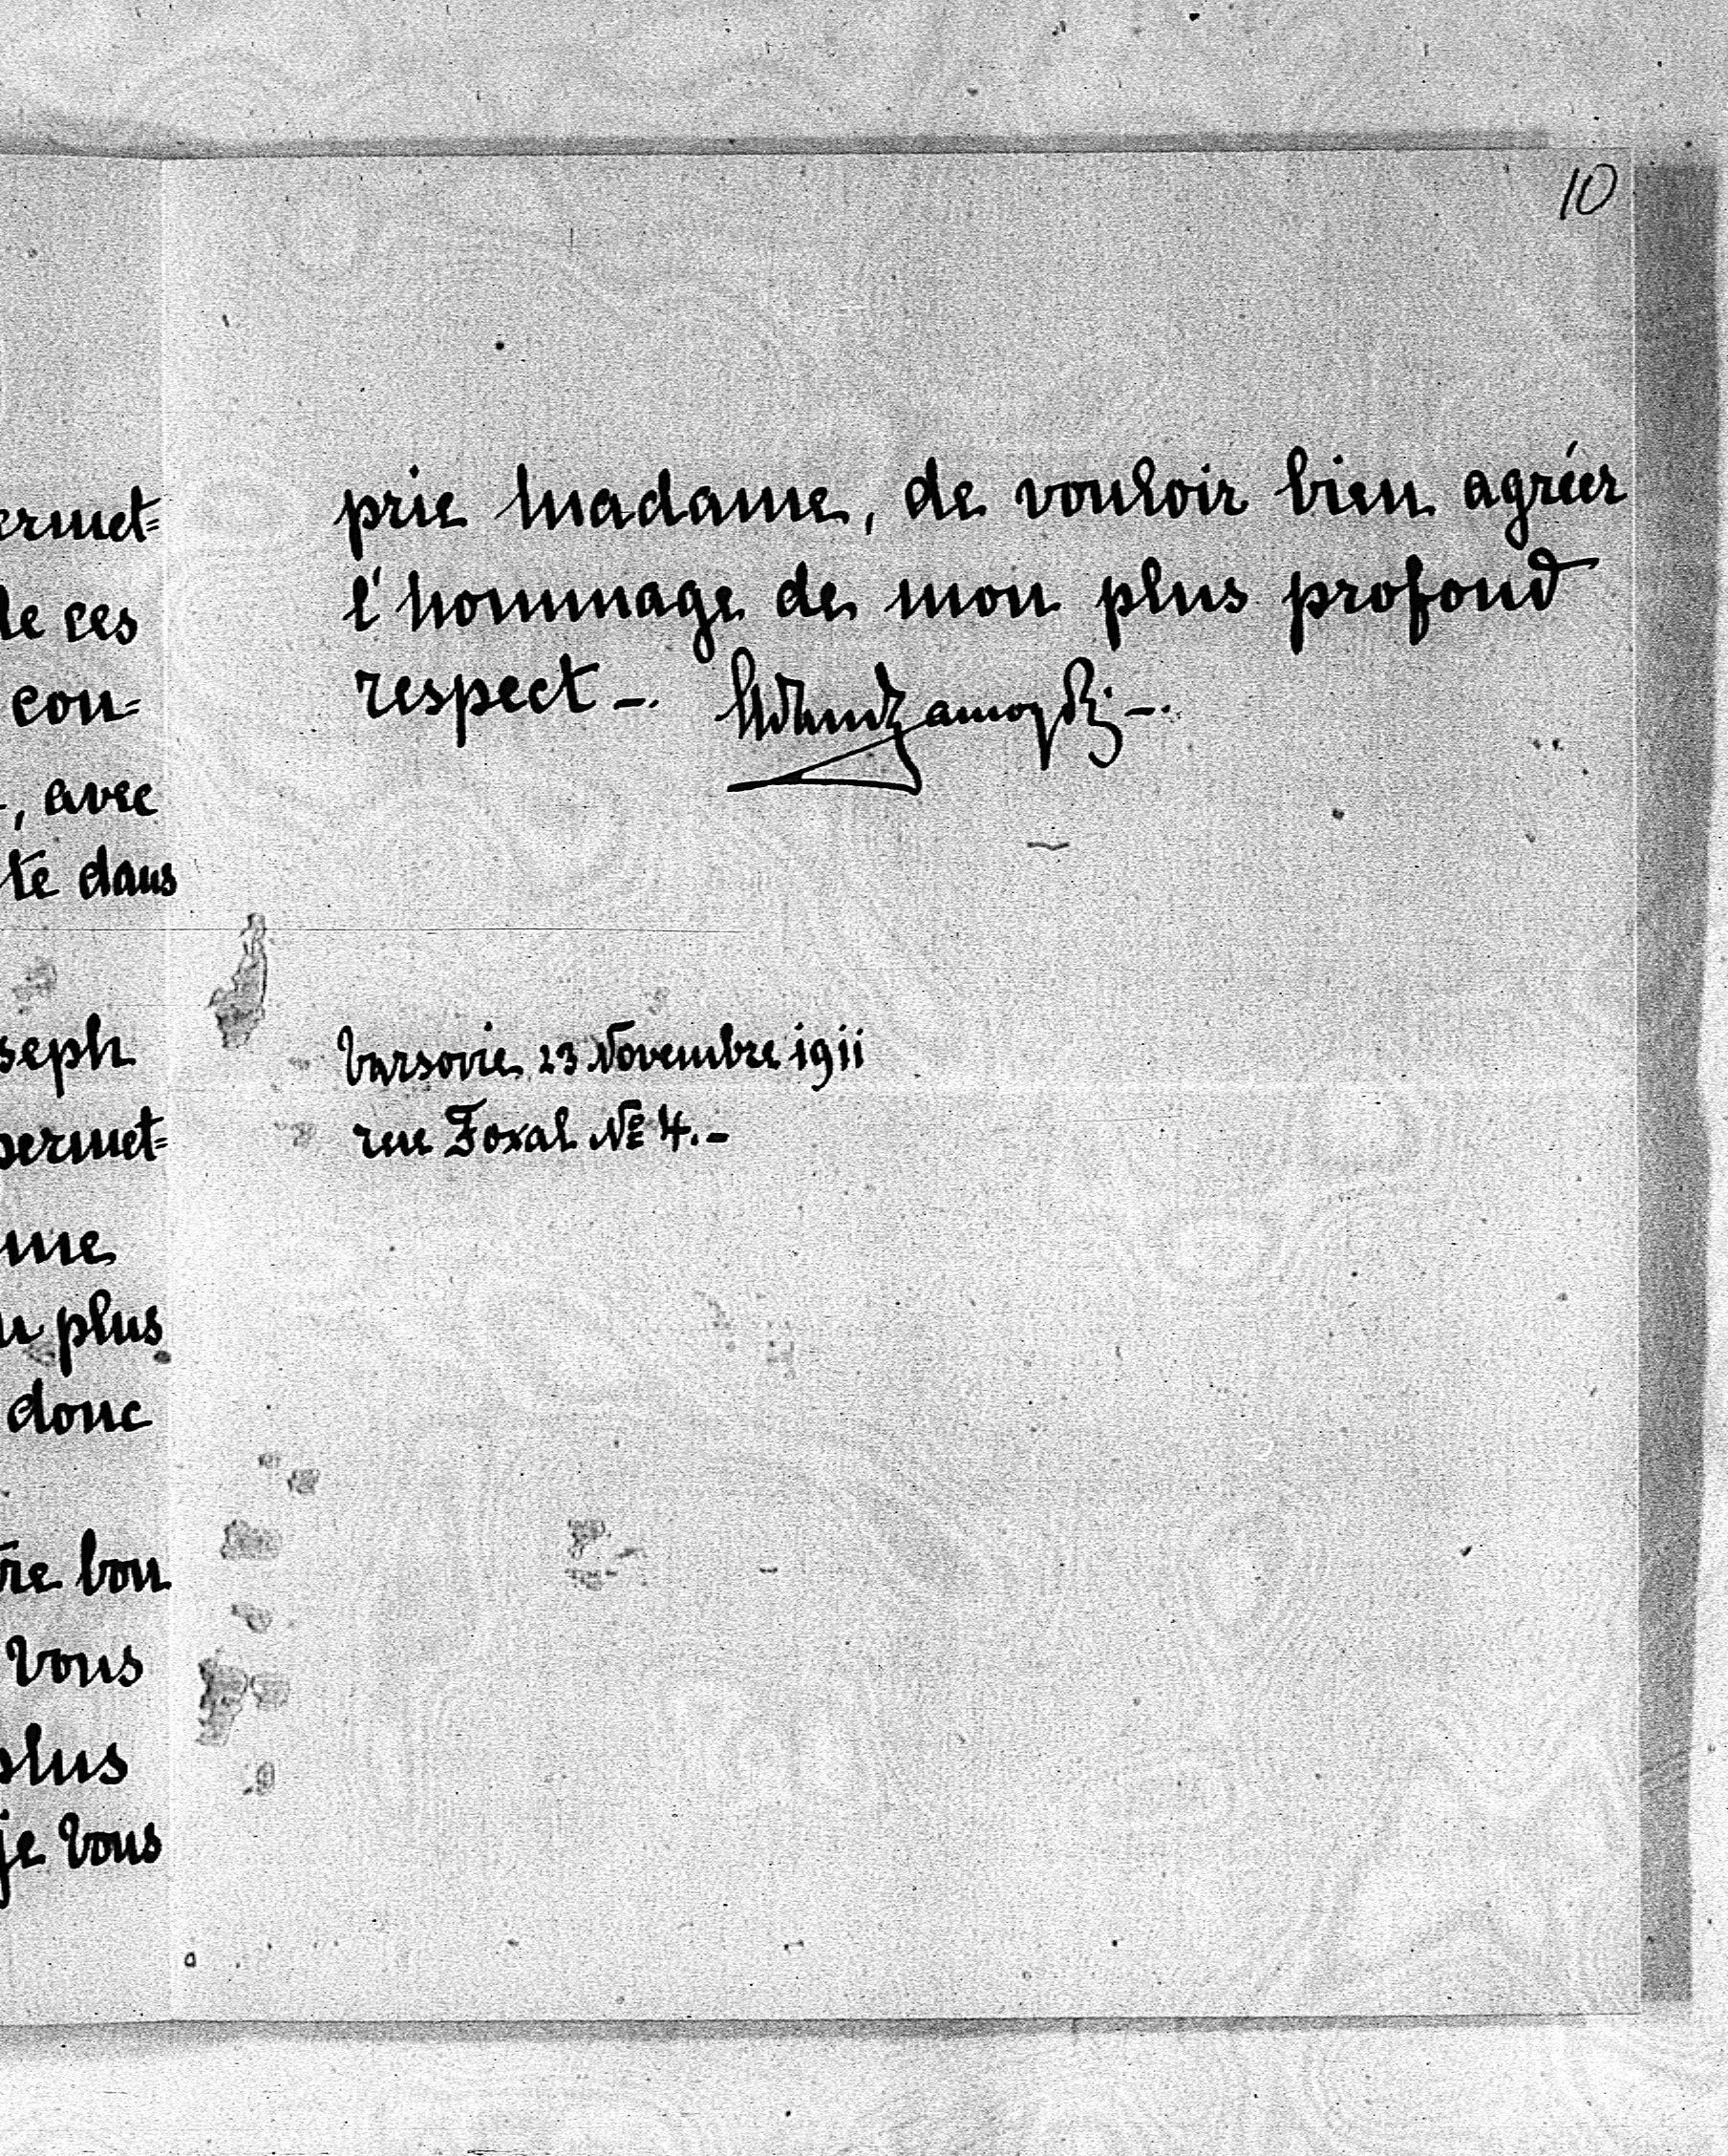 10
ermet=
de ces
con=
, avec
te dans
seph
permet=
me
plus
donc
bon
vous
plus
je vous
prie Madame, de vouloir bien agréer
l'hommage de mon plus profond
respect _. Adam Zamoyski _.
Varsovie 23 Novembre 1911
rue Foxal № 4. _